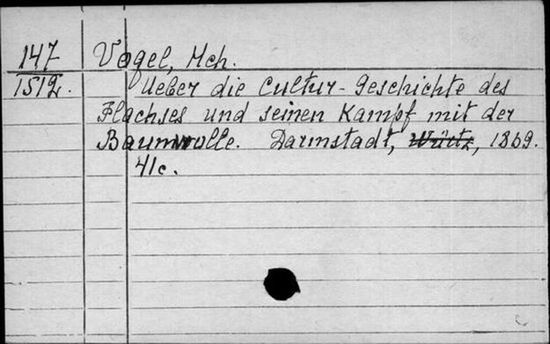 147 Vogel, Mch.
1512. Ueber die Cultur-Geschichte des
Flachses und seinen Kampf mit der
Baumwolle. Darmstadt, Würtz, 1869.
41c.